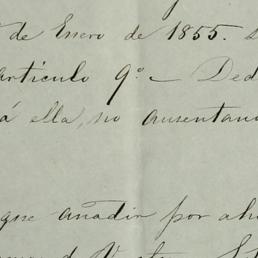 de Enero de 1855.
artículo 9º. – Ded
á ella, no ausentan
que añadir por ah